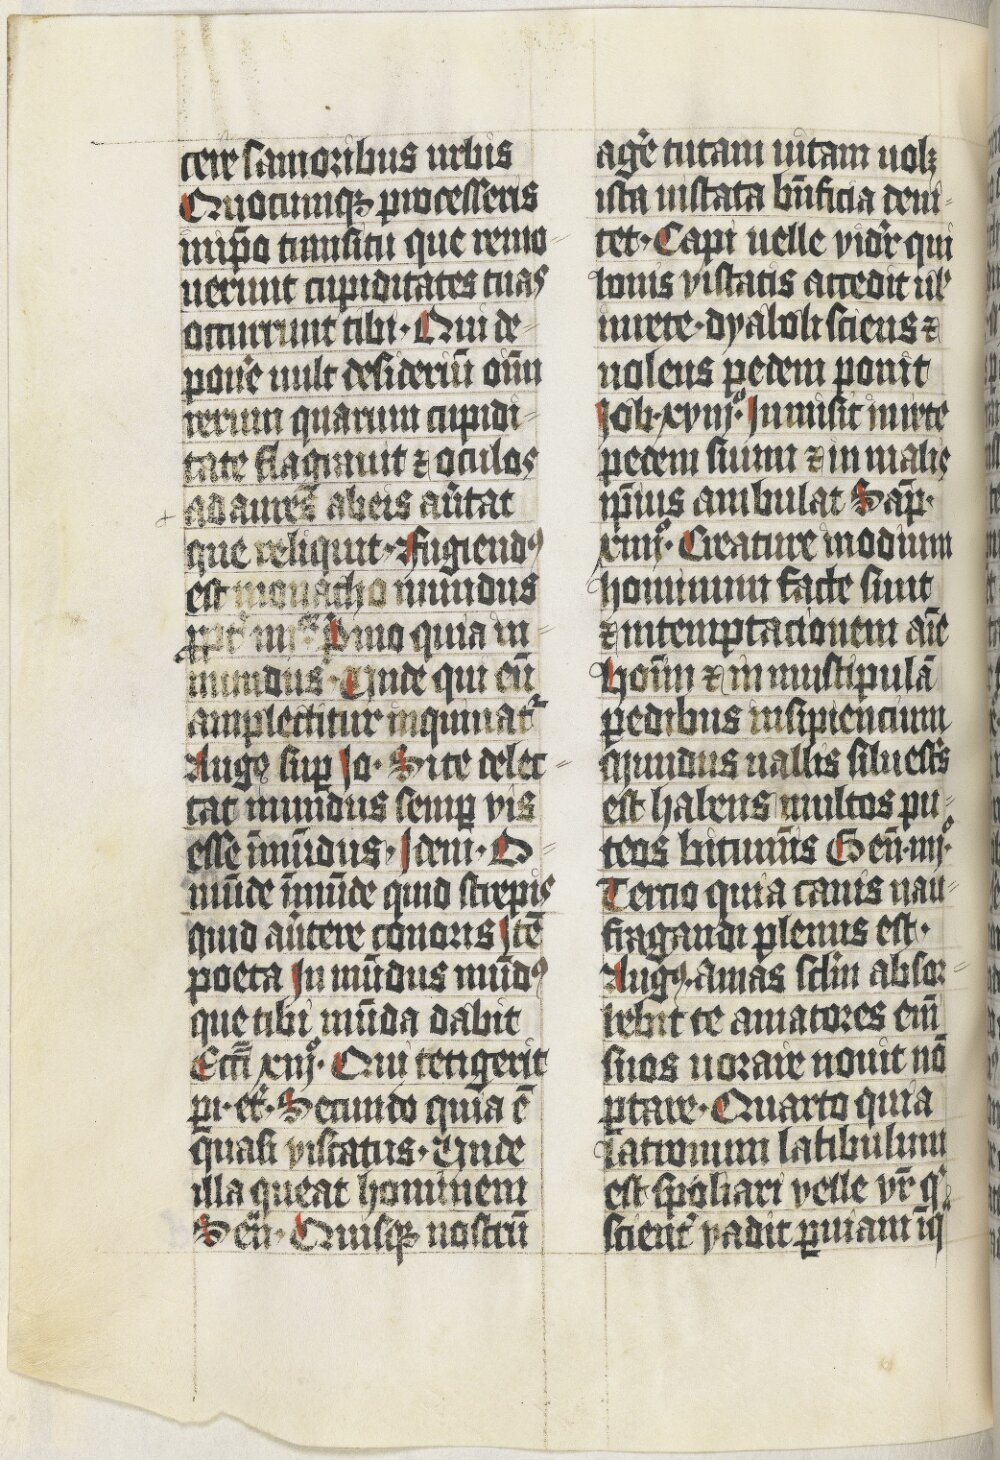 cere samoribus urbis
Quocumqꝫ processeris
in ip̄o transitu que remo
uerunt cupiditates tuas
occurrunt tibi· Qui de
pon̄e uult desideriū om̄
rerum quarum cupidi
tate flagrauit ⁊ oculos
ad aures ab eis au̅tat
que reliquit· Fugiendꝰ
est monacho mundus
Primo quia in
mundus· Unde qui eū
amplectitur inquinat᷑
Augꝰ suꝑ Io· Si te delec
tat mundus semꝑ vis
esse īmūdus· Idem· O
mūde īmūde quid strepis
quid au̅tere conaris Itē
poeta In mūdus mūdꝰ
que tibi mūda dabit
Ecc̄i xiijº· Qui tetigerit
pi· ec̄· Secundo quia ē
quasi viscatus· Unde
illa queat hominem
Sen̄· Quisqꝫ nostrū
agē tutam uitam uolꝫ
ista viscata bn̄ficia deui
tet· Capi uelle vidr̄ qui
bonis viscatis accedit ul̓
in rete· dyaboli sciens ⁊
uolens pedem ponit
Iob· xviijº· Inmisit in rete
pedem suum ⁊ in malis
ip̄ius ambulat Sap̄·
xiiijº· Creature in odium
hominum facte sunt
⁊ in temptacionem aīe
hoīm ⁊ in muscipulā
pedibus insipiencium
Mundus uallis siluest̄s
est habens multos pu
teos bituminis Gen̄· iiijº·
Tercio quia causis nau
fragandi plenus est·
Augꝰ· amas sc̄lm absor
bebit te amatores em̄
suos uorare nouit nō
ꝑtare· Quarto quia
latronum latibulum
est spoliari velle vr̄ q̓
scient̓ vadit ꝑ uiam īq̓